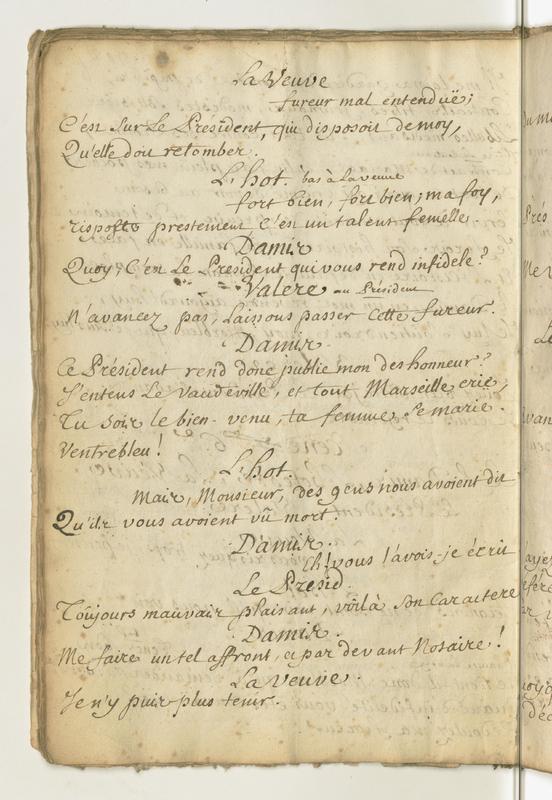 La Veuve
fureur mal entenduë;
C'est sur Le President, qui disposoit de moy,
Qu'elle doit retomber.
L'hot. bas à la veuve
fort bien, fort bien; ma foy,
risposte prestement c'est un talent femelle.
Damis
Quoy, C'est Le President qui vous rend infidele?
Valere au Président
N'avancez pas, Laissons passer cette fureur.
Damis
Ce Président rend donc publie mon deshonneur?
J'entens Le Vaudeville, et tout Marseille crie,
Tu sois le bien-venu, ta femme se marie.
Ventrebleu!
L'hot.
Mais, Monsieur, des gens nous avoient dit
Qu'ils vous avoient vû mort.
Damis.
Eh! vous l'avois-je écrit
Le Presid.
Toûjours mauvais plaisant, voilà son caractere
Damis.
Me faire un tel affront, et par devant Notaire!
La Veuve.
Je n'y puis plus tenir.
du m
Prés